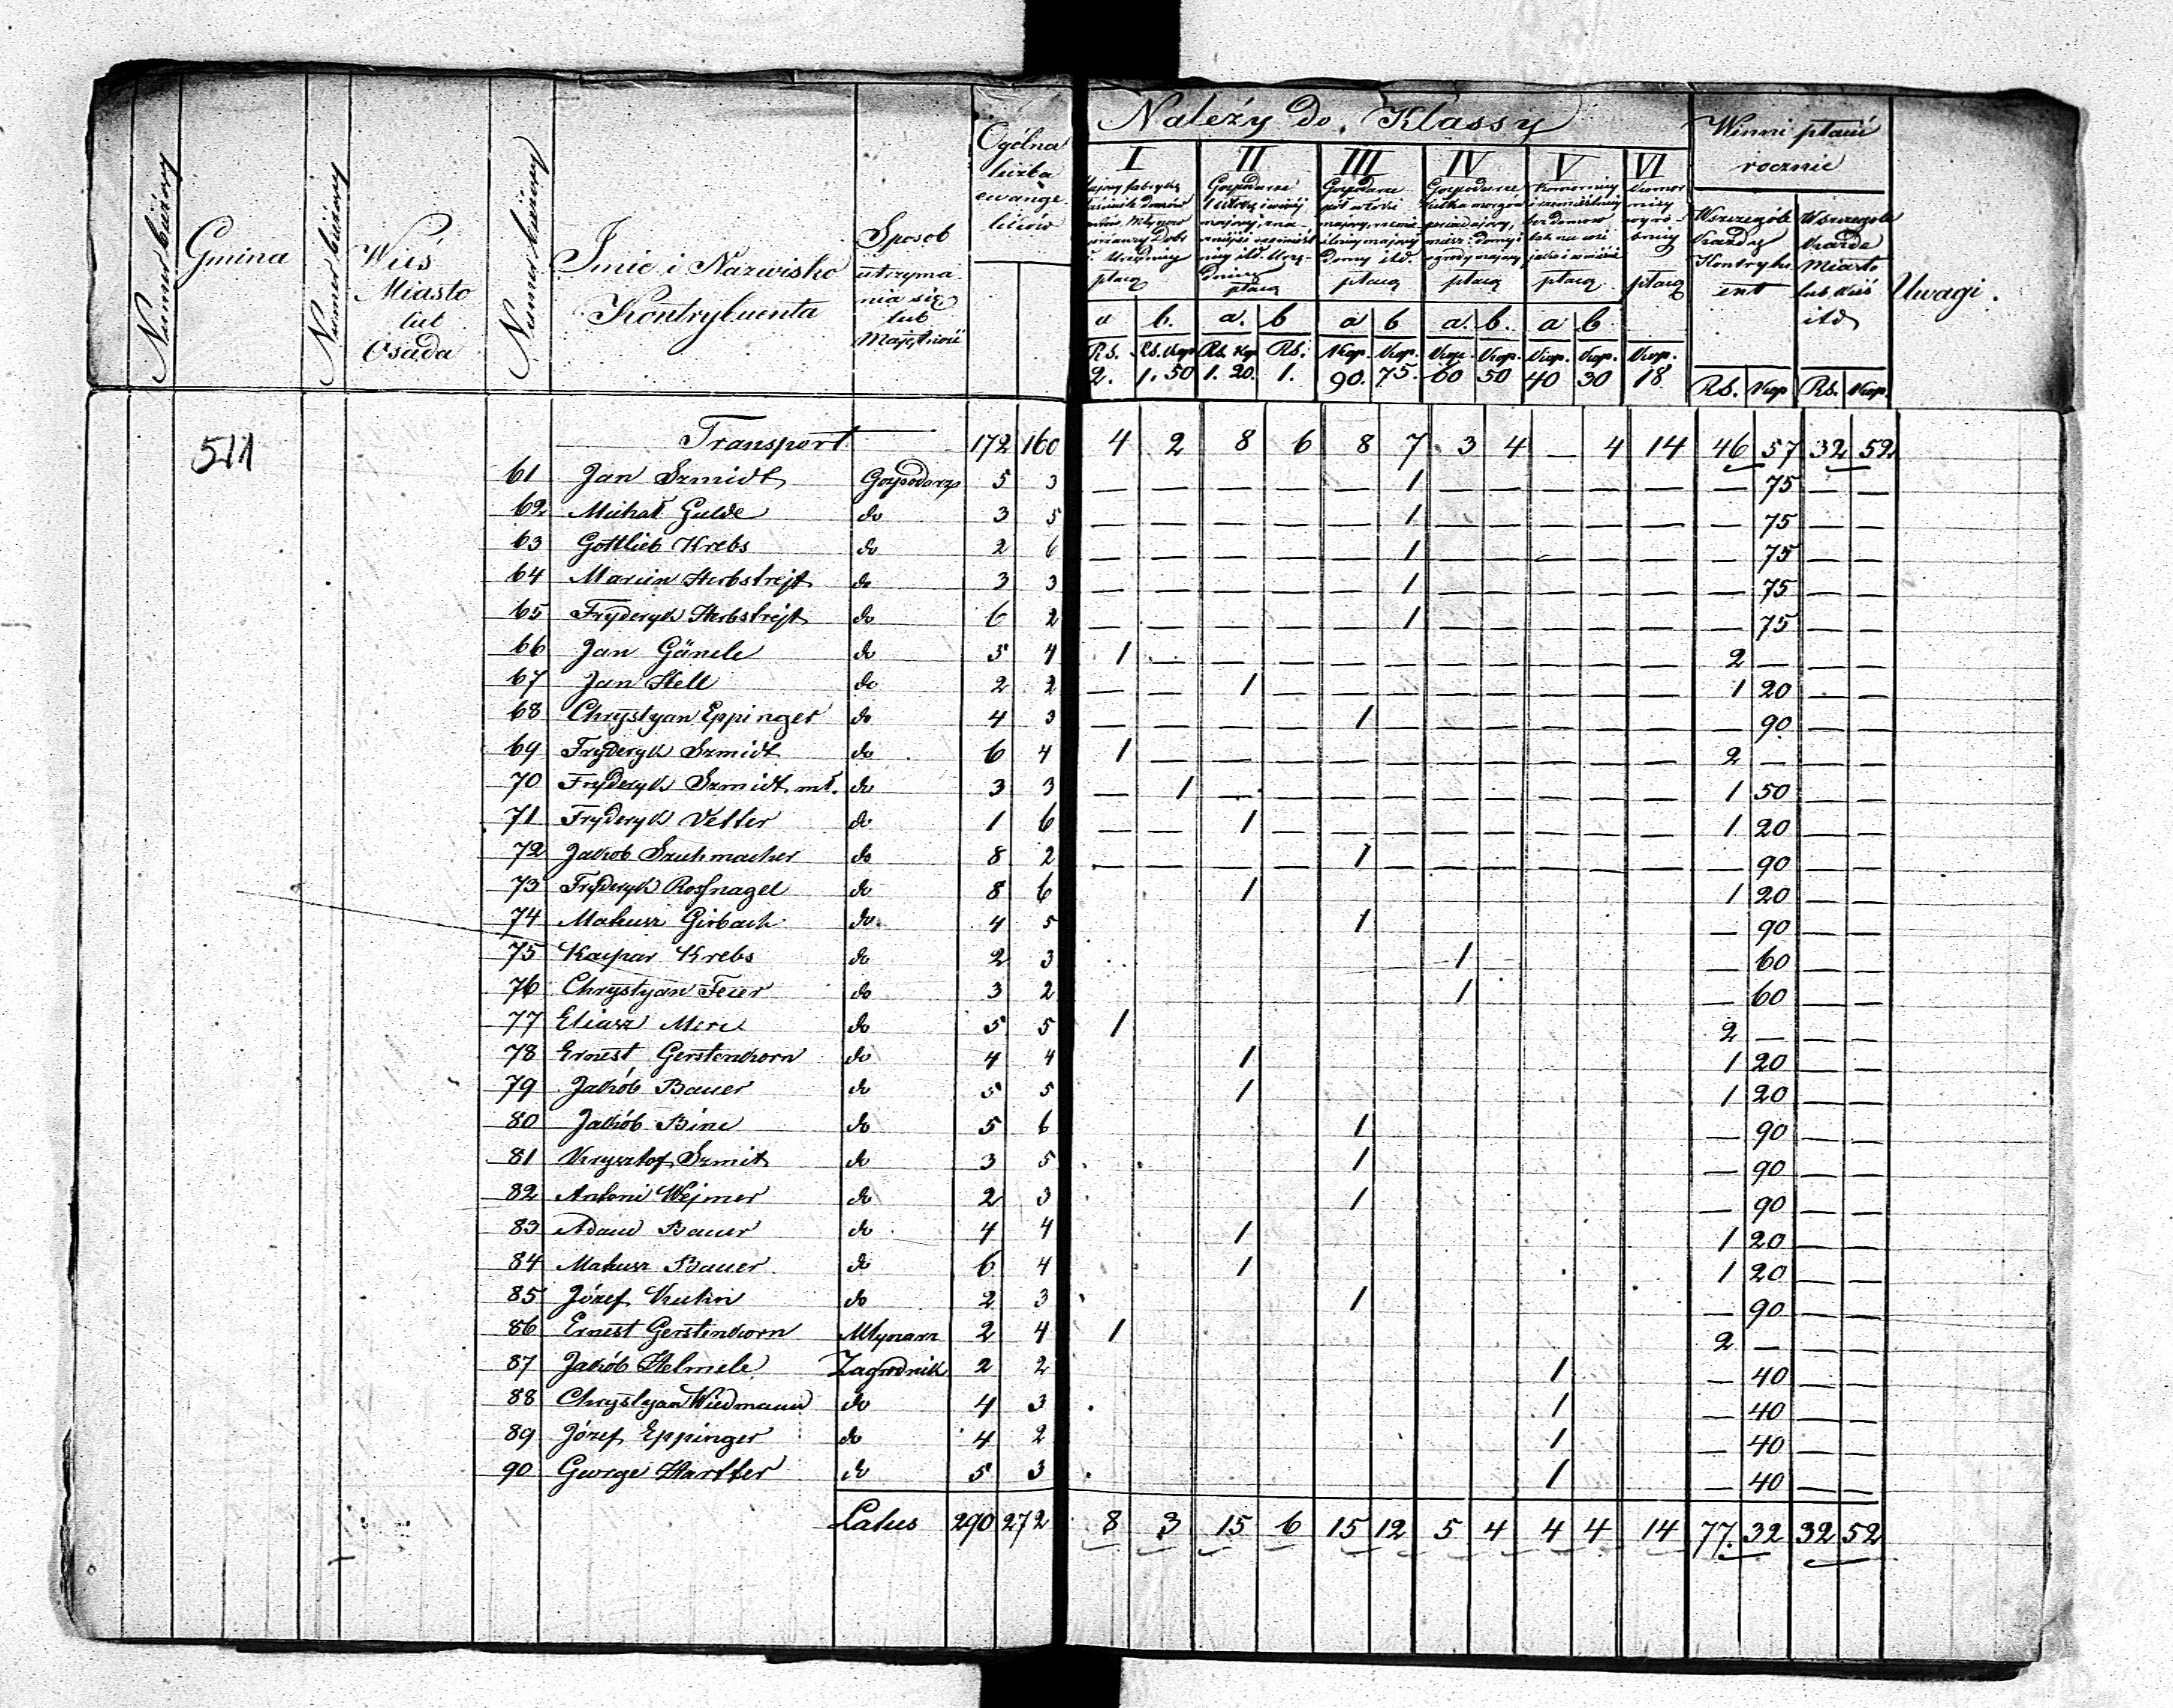 Numer bieżący
Gmina
Numer bieżący
Wieś
Miasto
lub
Osada
Numer bieżący
Imie i Nazwisko
Kontrybuenta
Sposob
utrzyma-
nia się
lub
Majętność
Ogólna
liczba
ewange-
lików
Należy do Klassy
I II III IV V VI
płacą płacą płacą płacą płacą płacą
a b. a. b a b a. b. a b
Rs. Rs. kop Rs. kop Rs. kop. kop. kop. kop. kop. kop. kop.
2. 1.50 1.20. 1. 90. 75. 60 50 40 30 18
Winni płacić
rocznie
Wszczególe
każdy
Kontrybu-
ent
Wszczególe
każde
Miasto
lub Wieś
itd
Rs. kop Rs. kop.
Uwagi.
511
Transport 172 160 4 2 8 6 8 7 3 4 — 4 14 46 57 32 52
61 Jan Szmidt Gospodarz 5 3 — — — — — 1 — — — — — — 75 — —
62 Michał Gulde do 3 5 — — — — — 1 — — — — — — 75 — —
63 Gottlieb Krebs do 2 6 — — — — — 1 — — — — — — 75 — —
64 Marcin Herbstrejt do 3 3 — — — — — 1 — — — — — — 75 — —
65 Fryderyk Herbstrejt do 6 2 — — — — — 1 — — — — — — 75 — —
66 Jan Gänele do 5 4 1 — — — — — — — — — — 2 — — —
67 Jan Hell do 2 2 — — 1 — — — — — — — — 1 20 — —
68 Chrystyan Eppinger do 4 3 — — — — 1 — — — — — — — 90 — —
69 Fryderyk Szmidt do 6 4 1 — — — — — — — — — — 2 — — —
70 Fryderyk Szmidt mł. do 3 3 — 1 — — — — — — — — — 1 50 — —
71 Fryderyk Vetter do 1 6 — — 1 — — — — — — — — 1 20 — —
72 Jakob Szuhmacher do 8 2 — — — — 1 — — — — — — — 90 — —
73 Fryderyk Rosnagel do 8 6 1 1 20 — —
74 Mateusz Girbach do 4 5 1 — 90 — —
75 Kaspar Krebs do 2 3 1 — 60 — —
76 Chrystyan Feier do 3 2 1 — 60 — —
77 Eliasz do 5 5 1 2 — — —
78 Ernest Gerstenkorn do 4 4 1 1 20 — —
79 Jakób Bauer do 5 5 1 1 20 — —
80 Jakób do 5 6 1 — 90 — —
81 Krysztof Szmit do 3 5 1 — 90 — —
82 Antoni Wejmer do 2 3 1 — 90 — —
83 Adam Bauer do 4 4 1 1 20 — —
84 Mateusz Bauer do 6 4 1 1 20 — —
85 Józef Kuhn do 2 3 1 — 90 — —
86 Ernest Gerstenkorn Młynarz 2 4 1 2 — — —
87 Jakób Helmele Zagrodnik 2 2 1 — 40 — —
88 Chrystyan Wiedmann do 4 3 1 — 40 — —
89 Józef Eppinger do 4 2 1 — 40 — —
90 George Hartter do 5 3 1 — 40 — —
Latus 290 272 8 3 15 6 15 12 5 4 4 4 14 77. 32 32 52